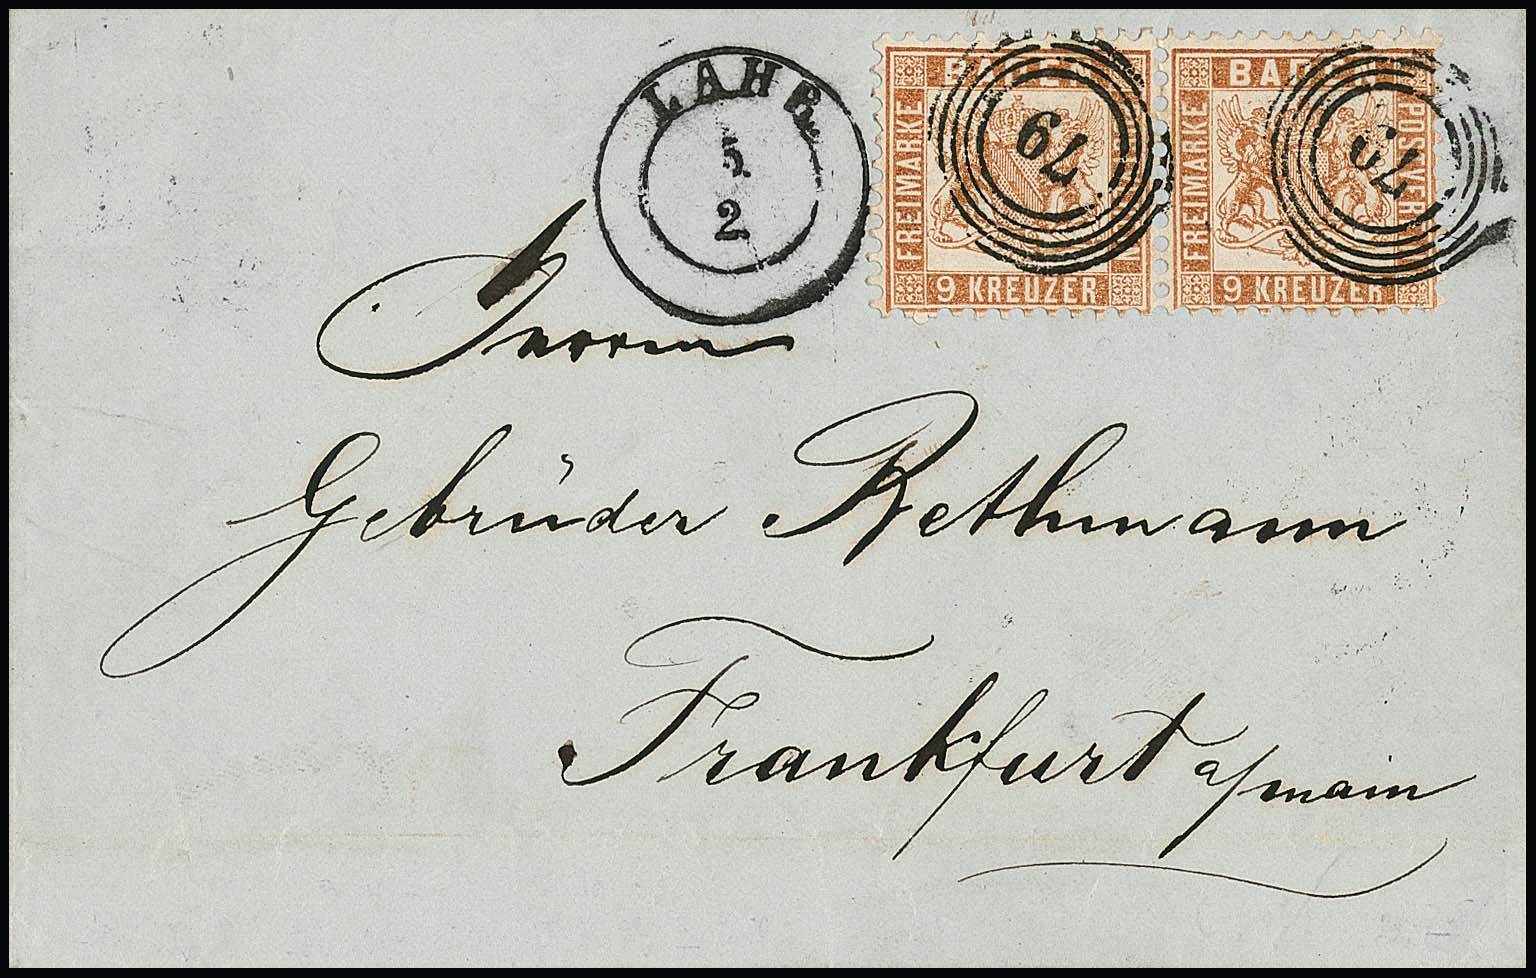 LAHR
5
2
BADEN
FREIMARKE
9 KREUZER
79
BAD
FREIMARKE
POSTVER
9 KREUZER
79
Herren
Gebrüder Bethmann
Frankfurt a/main